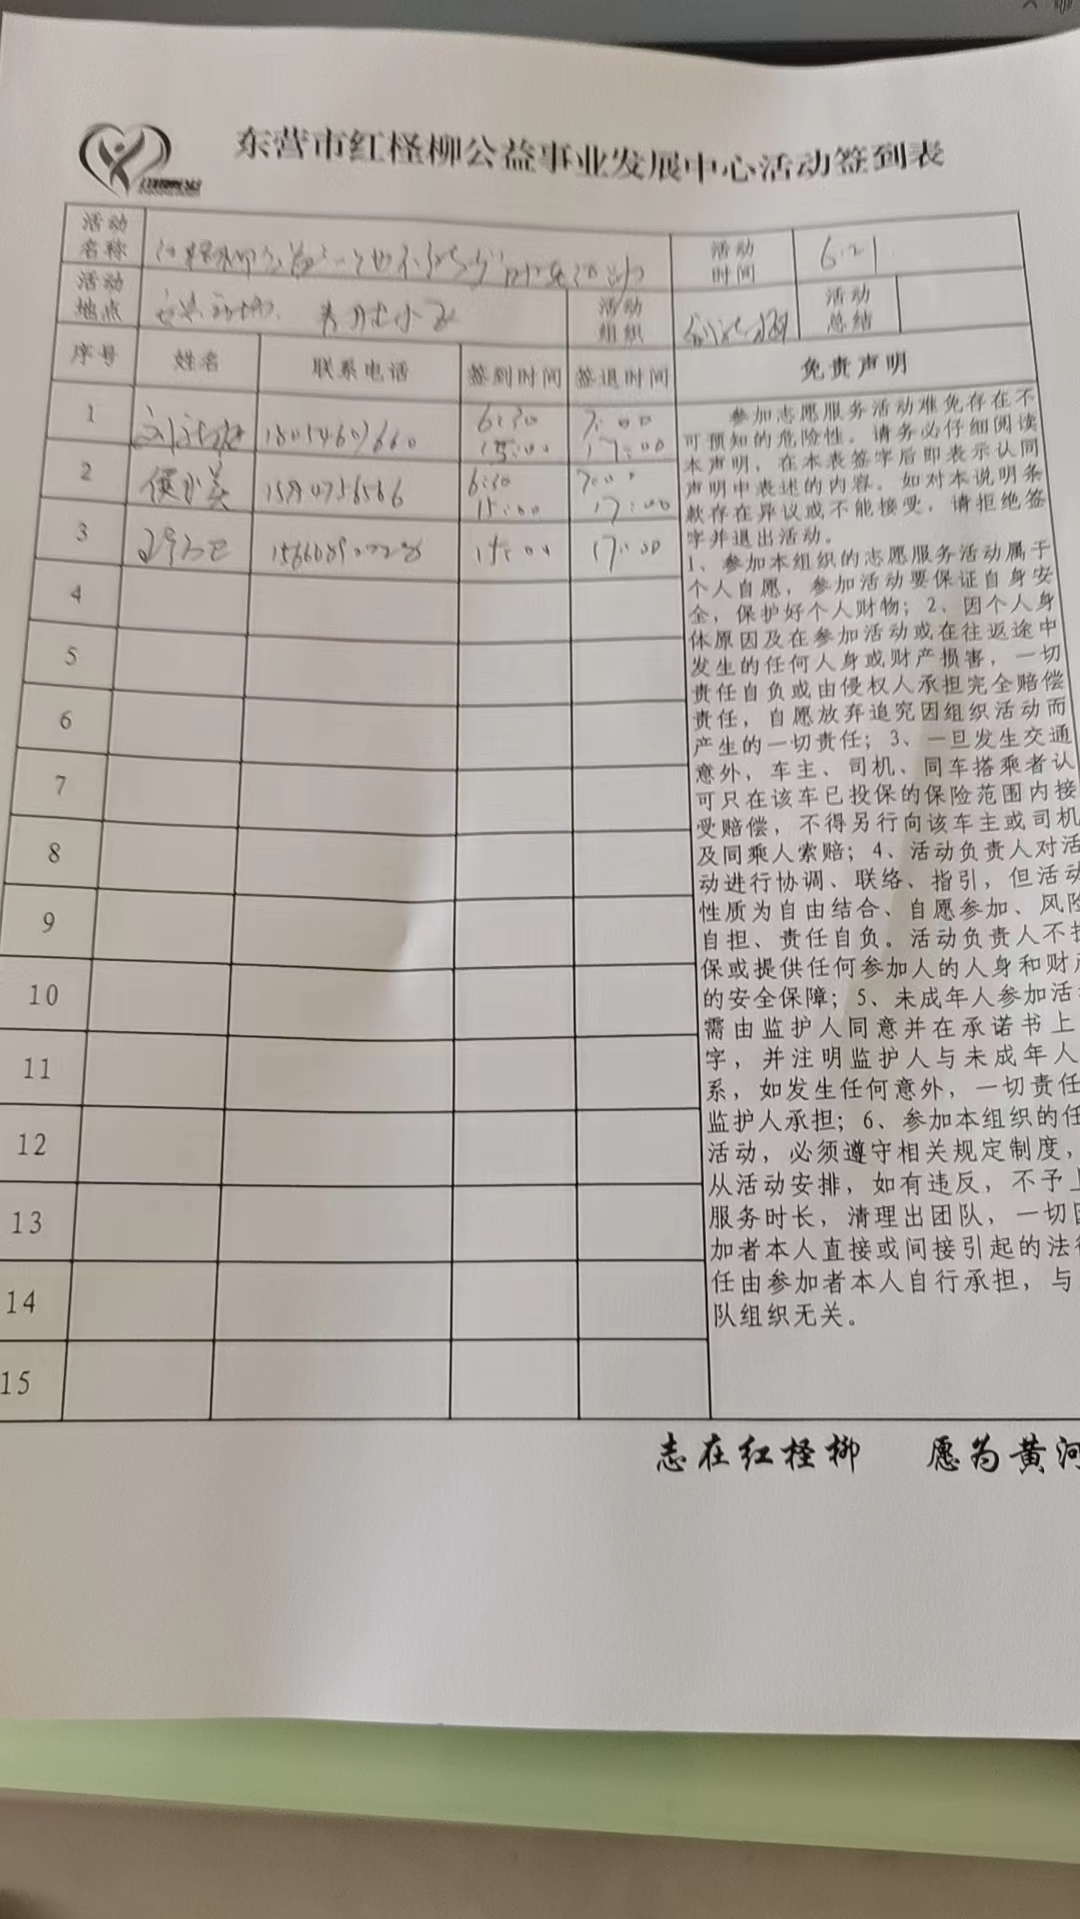 东营市红柽柳公益事业发展中心活动签到表
活动名称
活动时间 6.21
活动地点
活动组织
活动总结
序号 姓名 联系电话 签到时间 签退时间 免责声明
1 18054607660 6:30 7:00
15:00 17:00
2 6:30 7:00
15:00 17:00
3 15:00 17:00
4
5
6
7
8
9
10
11
12
13
14
15
参加志愿服务活动难免存在不
可预知的危险性。请务必仔细阅读
本声明，在本表签字后即表示认同
声明中表述的内容。如对本说明条
款存在异议或不能接受，请拒绝签
字并退出活动。
1、参加本组织的志愿服务活动属于
个人自愿，参加活动要保证自身安
全，保护好个人财物；2、因个人身
体原因及在参加活动或在往返途中
发生的任何人身或财产损害，一切
责任自负或由侵权人承担完全赔偿
责任，自愿放弃追究因组织活动而
产生的一切责任；3、一旦发生交通
意外，车主、司机、同车搭乘者认
可只在该车已投保的保险范围内接
受赔偿，不得另行向该车主或司机
及同乘人索赔；4、活动负责人对活
动进行协调、联络、指引，但活动
性质为自由结合、自愿参加、风险
自担、责任自负。活动负责人不担
保或提供任何参加人的人身和财产
的安全保障；5、未成年人参加活
需由监护人同意并在承诺书上
字，并注明监护人与未成年人
系，如发生任何意外，一切责任
监护人承担；6、参加本组织的任
活动，必须遵守相关规定制度，
从活动安排，如有违反，不予上
服务时长，清理出团队，一切因
加者本人直接或间接引起的法律
任由参加者本人自行承担，与
队组织无关。
志在红柽柳 愿为黄河